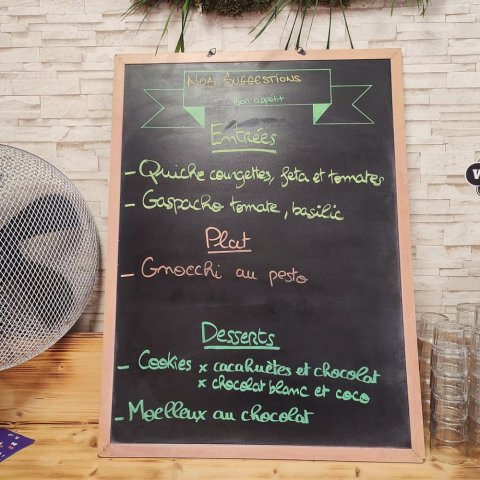 Nos Suggestions
Bon appétit
Entrées
- Quiche courgettes, feta et tomates
- Gaspacho tomate, basilic
Plat
- Gnocchi au pesto
Desserts
- Cookies x cacahuètes et chocolat
x chocolat blanc et coco
- Moelleux au chocolat